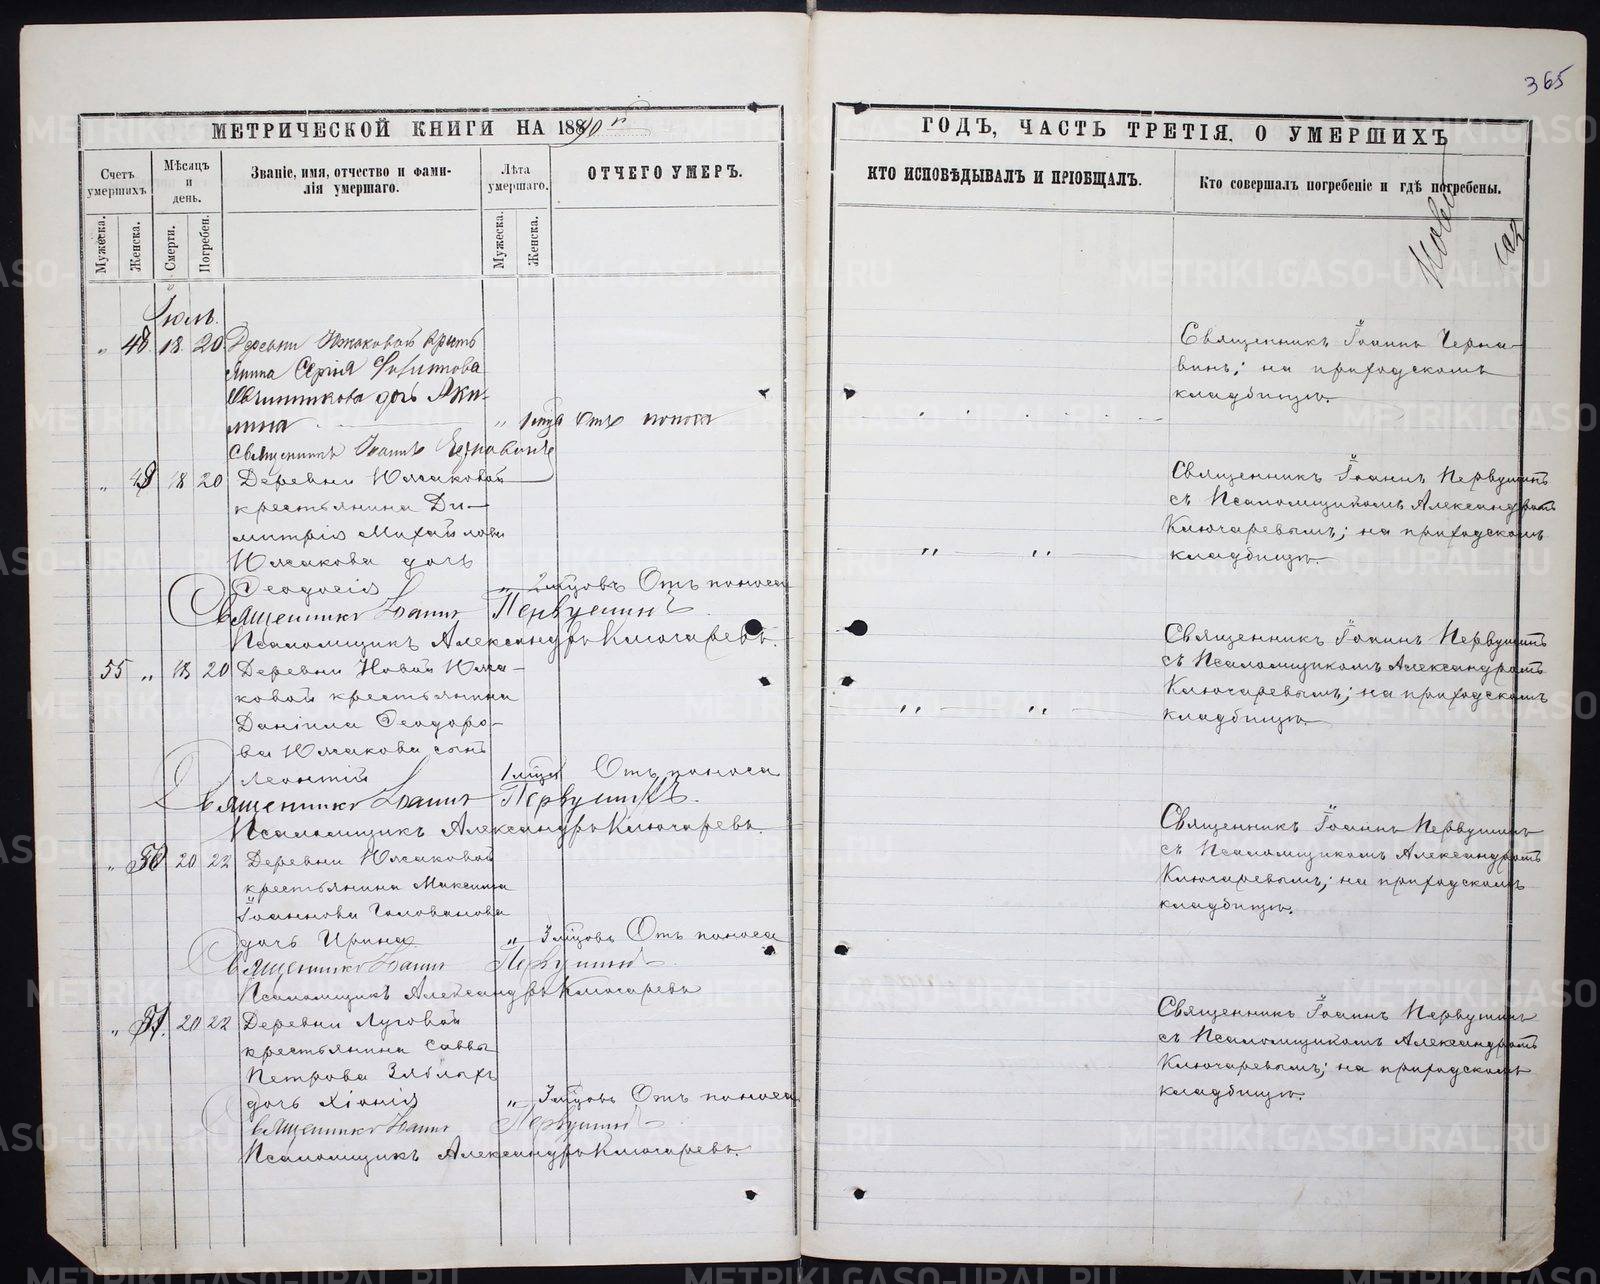 365
МЕТРИЧЕСКОЙ КНИГИ НА 1890 г
Счетъ умершихъ.
Мѣсяцъ и день.
Званіе, имя, отчество и фами-
лія умершаго.
Лѣта умершаго.
ОТЧЕГО УМЕРЪ.
Мужеска.
Женска.
Смерти.
Погребен.
Мужеска.
Женска.
Іюль.
„ 48 18 20 Деревни Южаковой кресть
янина Сергія
дочь Аки-
лина „ 1 мѣс. Отъ поноса
Священникъ Іоаннъ Чернавинъ
„ 49 18 20 Деревни Южаковой
крестьянина Ди-
митрія Михайлова
Южакова дочь
Ѳеодосія „ 2 мѣсцовъ Отъ поноса
Священникъ Іоаннъ Первушинъ
Псаломщикъ Александръ Ключаревъ.
55 „ 18 20 Деревни Новой Южа-
ковой крестьянина
Даніила Ѳеодоро-
ва Южакова сынъ
Леонтій 1 мѣсц Отъ поноса
Священникъ Іоаннъ Первушинъ.
Псаломщикъ Александръ Ключаревъ.
„ 50 20 22 Деревни Южаковой
крестьянина Максима
Іоаннова Голованова
дочь Ирина „ 3 мѣсцовъ Отъ поноса
Священникъ Іоаннъ Первушинъ
Псаломщикъ Александръ Ключаревъ
„ 51. 20 22 Деревни Луговой
крестьянина Саввы
Петрова Злыхъ
дочь Хіонія „ 3 мѣсцовъ Отъ поноса
Священникъ Іоаннъ Первушинъ
Псаломщикъ Александръ Ключаревъ.
ГОДЪ, ЧАСТЬ ТРЕТІЯ, О УМЕРШИХЪ
КТО ИСПОВѢДЫВАЛЪ И ПРІОБЩАЛЪ.
Кто совершалъ погребеніе и гдѣ погребены.
Священникъ Іоаннъ Черна-
винъ; на приходскомъ
кладбищѣ.
Священникъ Іоаннъ Первушинъ
съ Псаломщикомъ Александромъ
Ключаревымъ; на приходскомъ
„ „ кладбищѣ.
Священникъ Іоаннъ Первушинъ
съ Псаломщикомъ Александромъ
Ключаревымъ; на приходскомъ
„ „ кладбищѣ.
Священникъ Іоаннъ Первушинъ
съ Псаломщикомъ Александромъ
Ключаревымъ; на приходскомъ
кладбищѣ.
Священникъ Іоаннъ Первушинъ
съ Псаломщикомъ Александромъ
Ключаревымъ; на приходскомъ
кладбищѣ.
METRIKI.GASO-URAL.RU